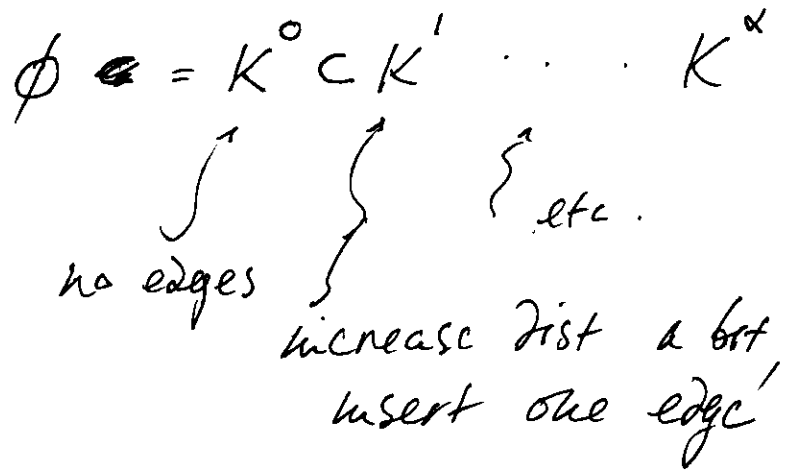 ∅ = K⁰ ⊂ K¹ . . . K^α
no edges
etc.
increase dist a bit,
insert one edge